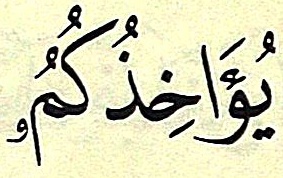 يُؤَاخِذُكُمُۥ